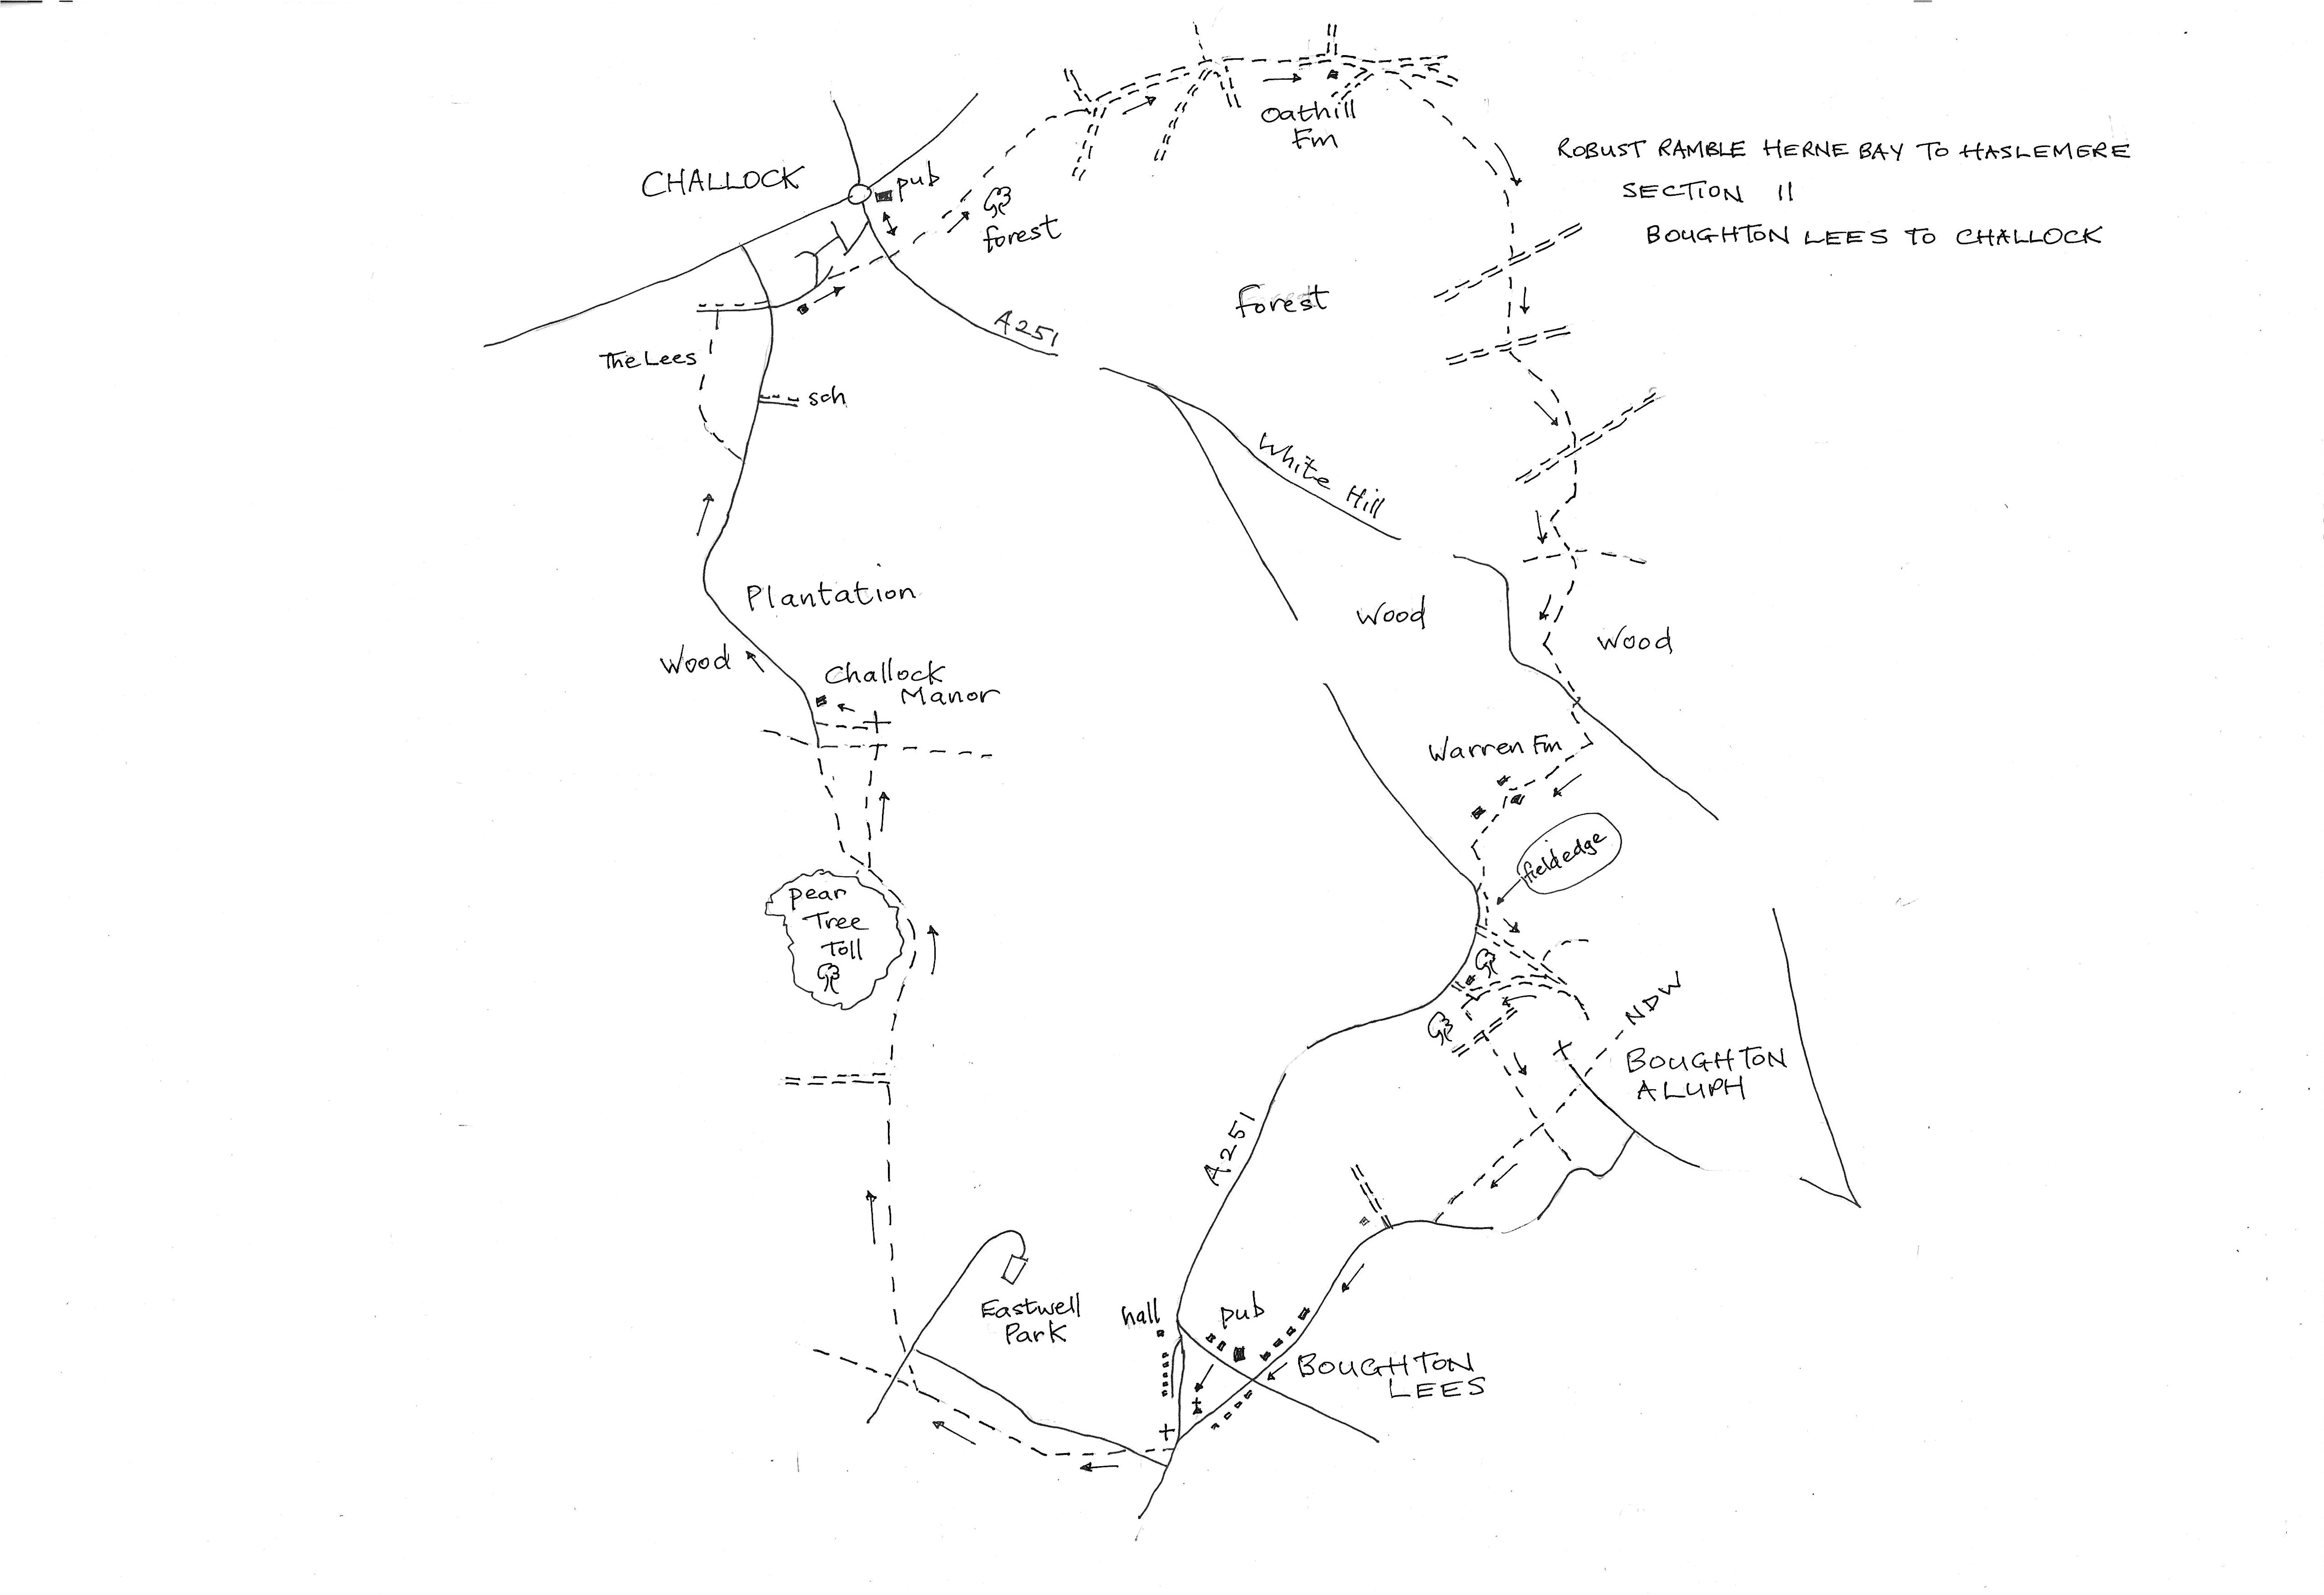 Oathill
Fm
ROBUST RAMBLE HERNE BAY TO HASLEMERE
SECTION 11
BOUGHTON LEES TO CHALLOCK
CHALLOCK
pub
forest
forest
A251
The Lees
sch
White Hill
Plantation
Wood
Wood
Wood
Challock
Manor
Warren Fm
field edge
pear
Tree
Toll
NDW
BOUGHTON
ALUPH
A251
Eastwell
Park
hall
pub
BOUGHTON
LEES